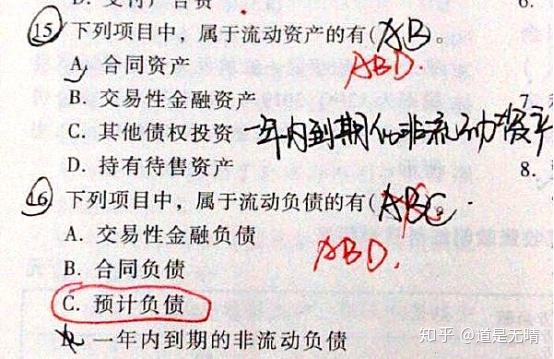 15. 下列项目中，属于流动资产的有( AB 。
ABD
A. 合同资产
B. 交易性金融资产
C. 其他债权投资 一年内到期的非流动资产
D. 持有待售资产
8.
16. 下列项目中，属于流动负债的有( ABC 。
A. 交易性金融负债
ABD.
B. 合同负债
C. 预计负债
一年内到期的非流动负债
知乎 @道是无晴